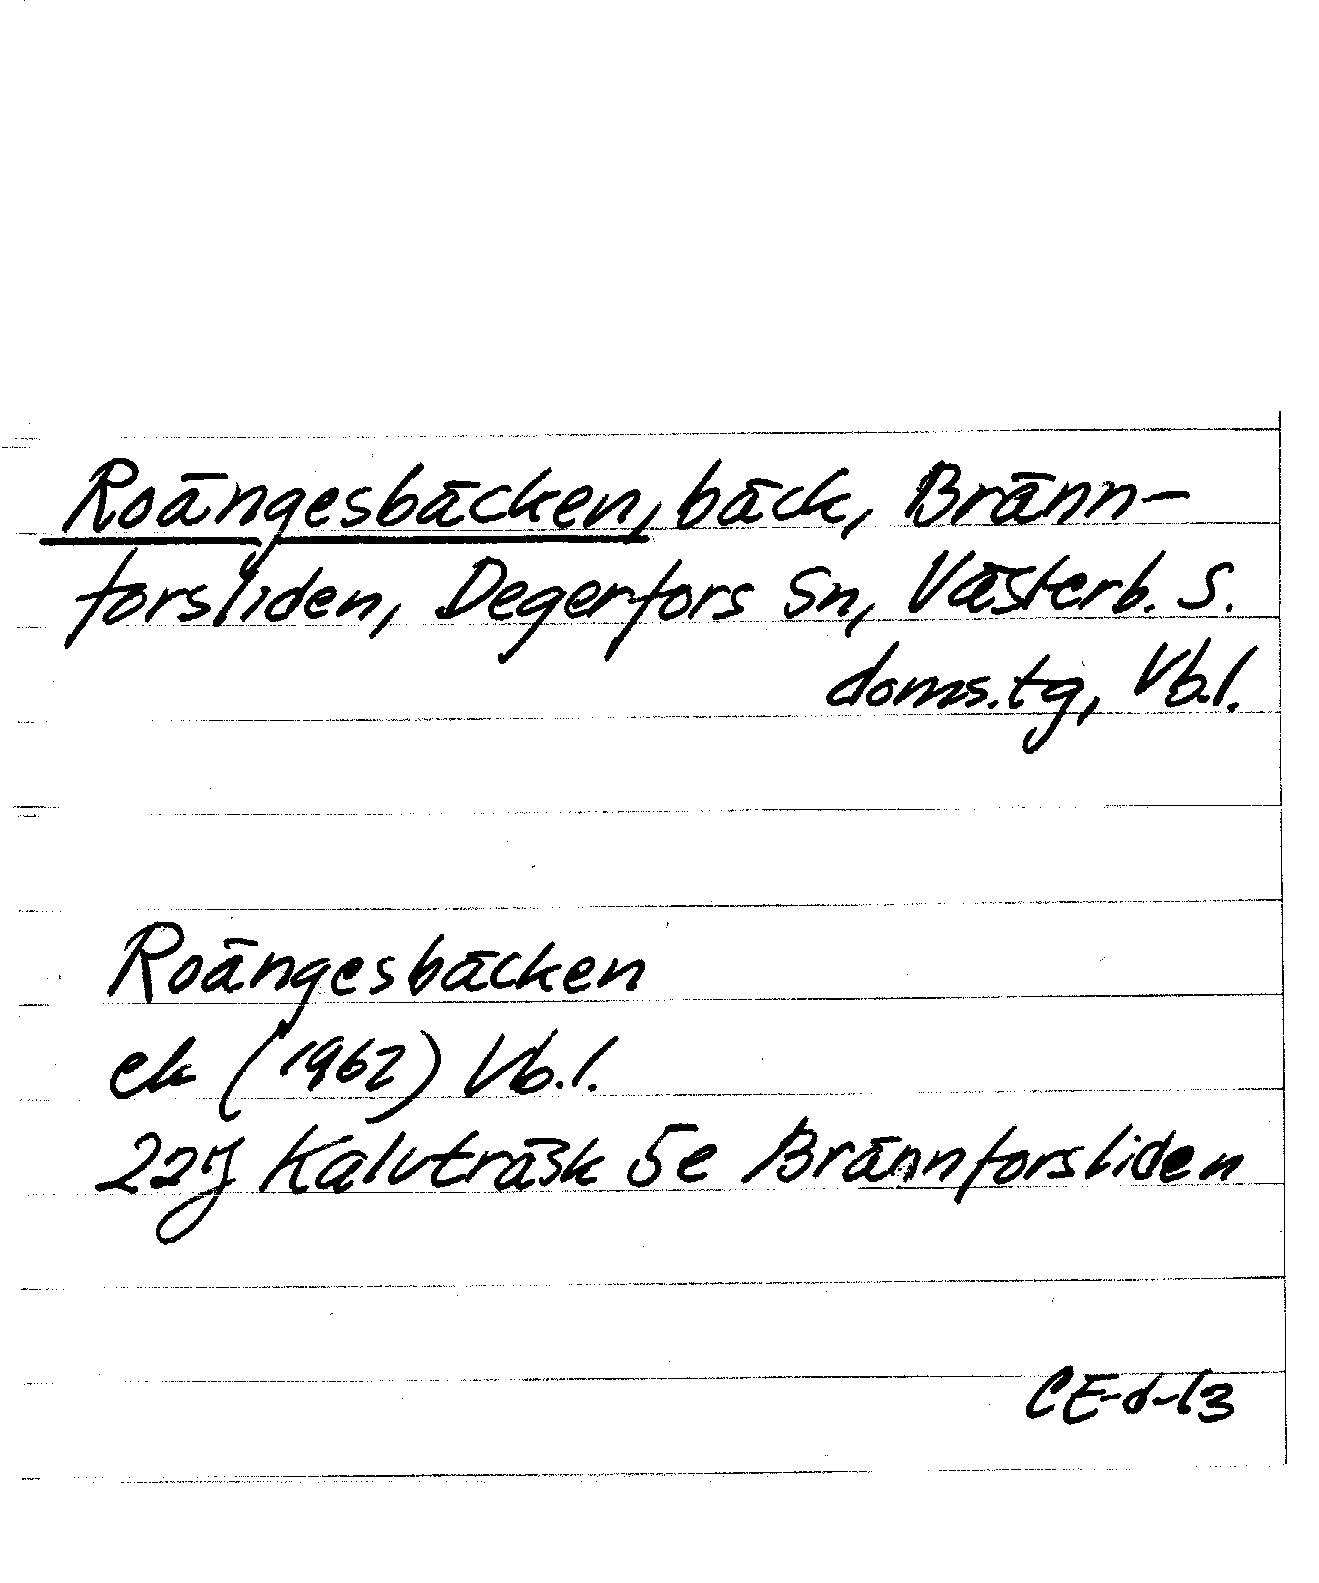 Roängesbäcken, bäck, Bränn-
forsliden, Degerfors Sn, Västerb. S.
doms.tg, Vb.l.
Roängesbäcken
ek (1962) Vb.l.
22J Kalvträsk 5e Brännforsliden
CE-d-13